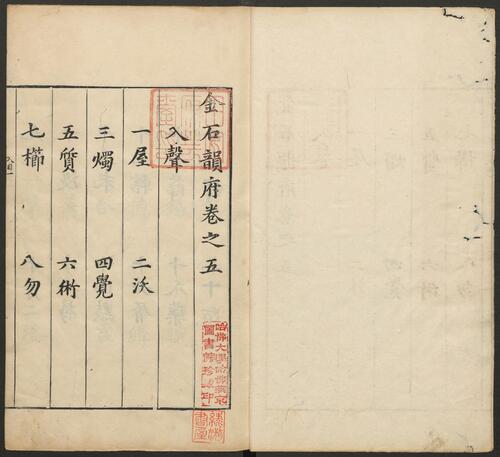 金石韻府卷之五
入聲
一屋　二沃
三燭　四覺
五質　六術
七櫛　八勿
哈佛大學哈佛燕京
圖書館珍藏印